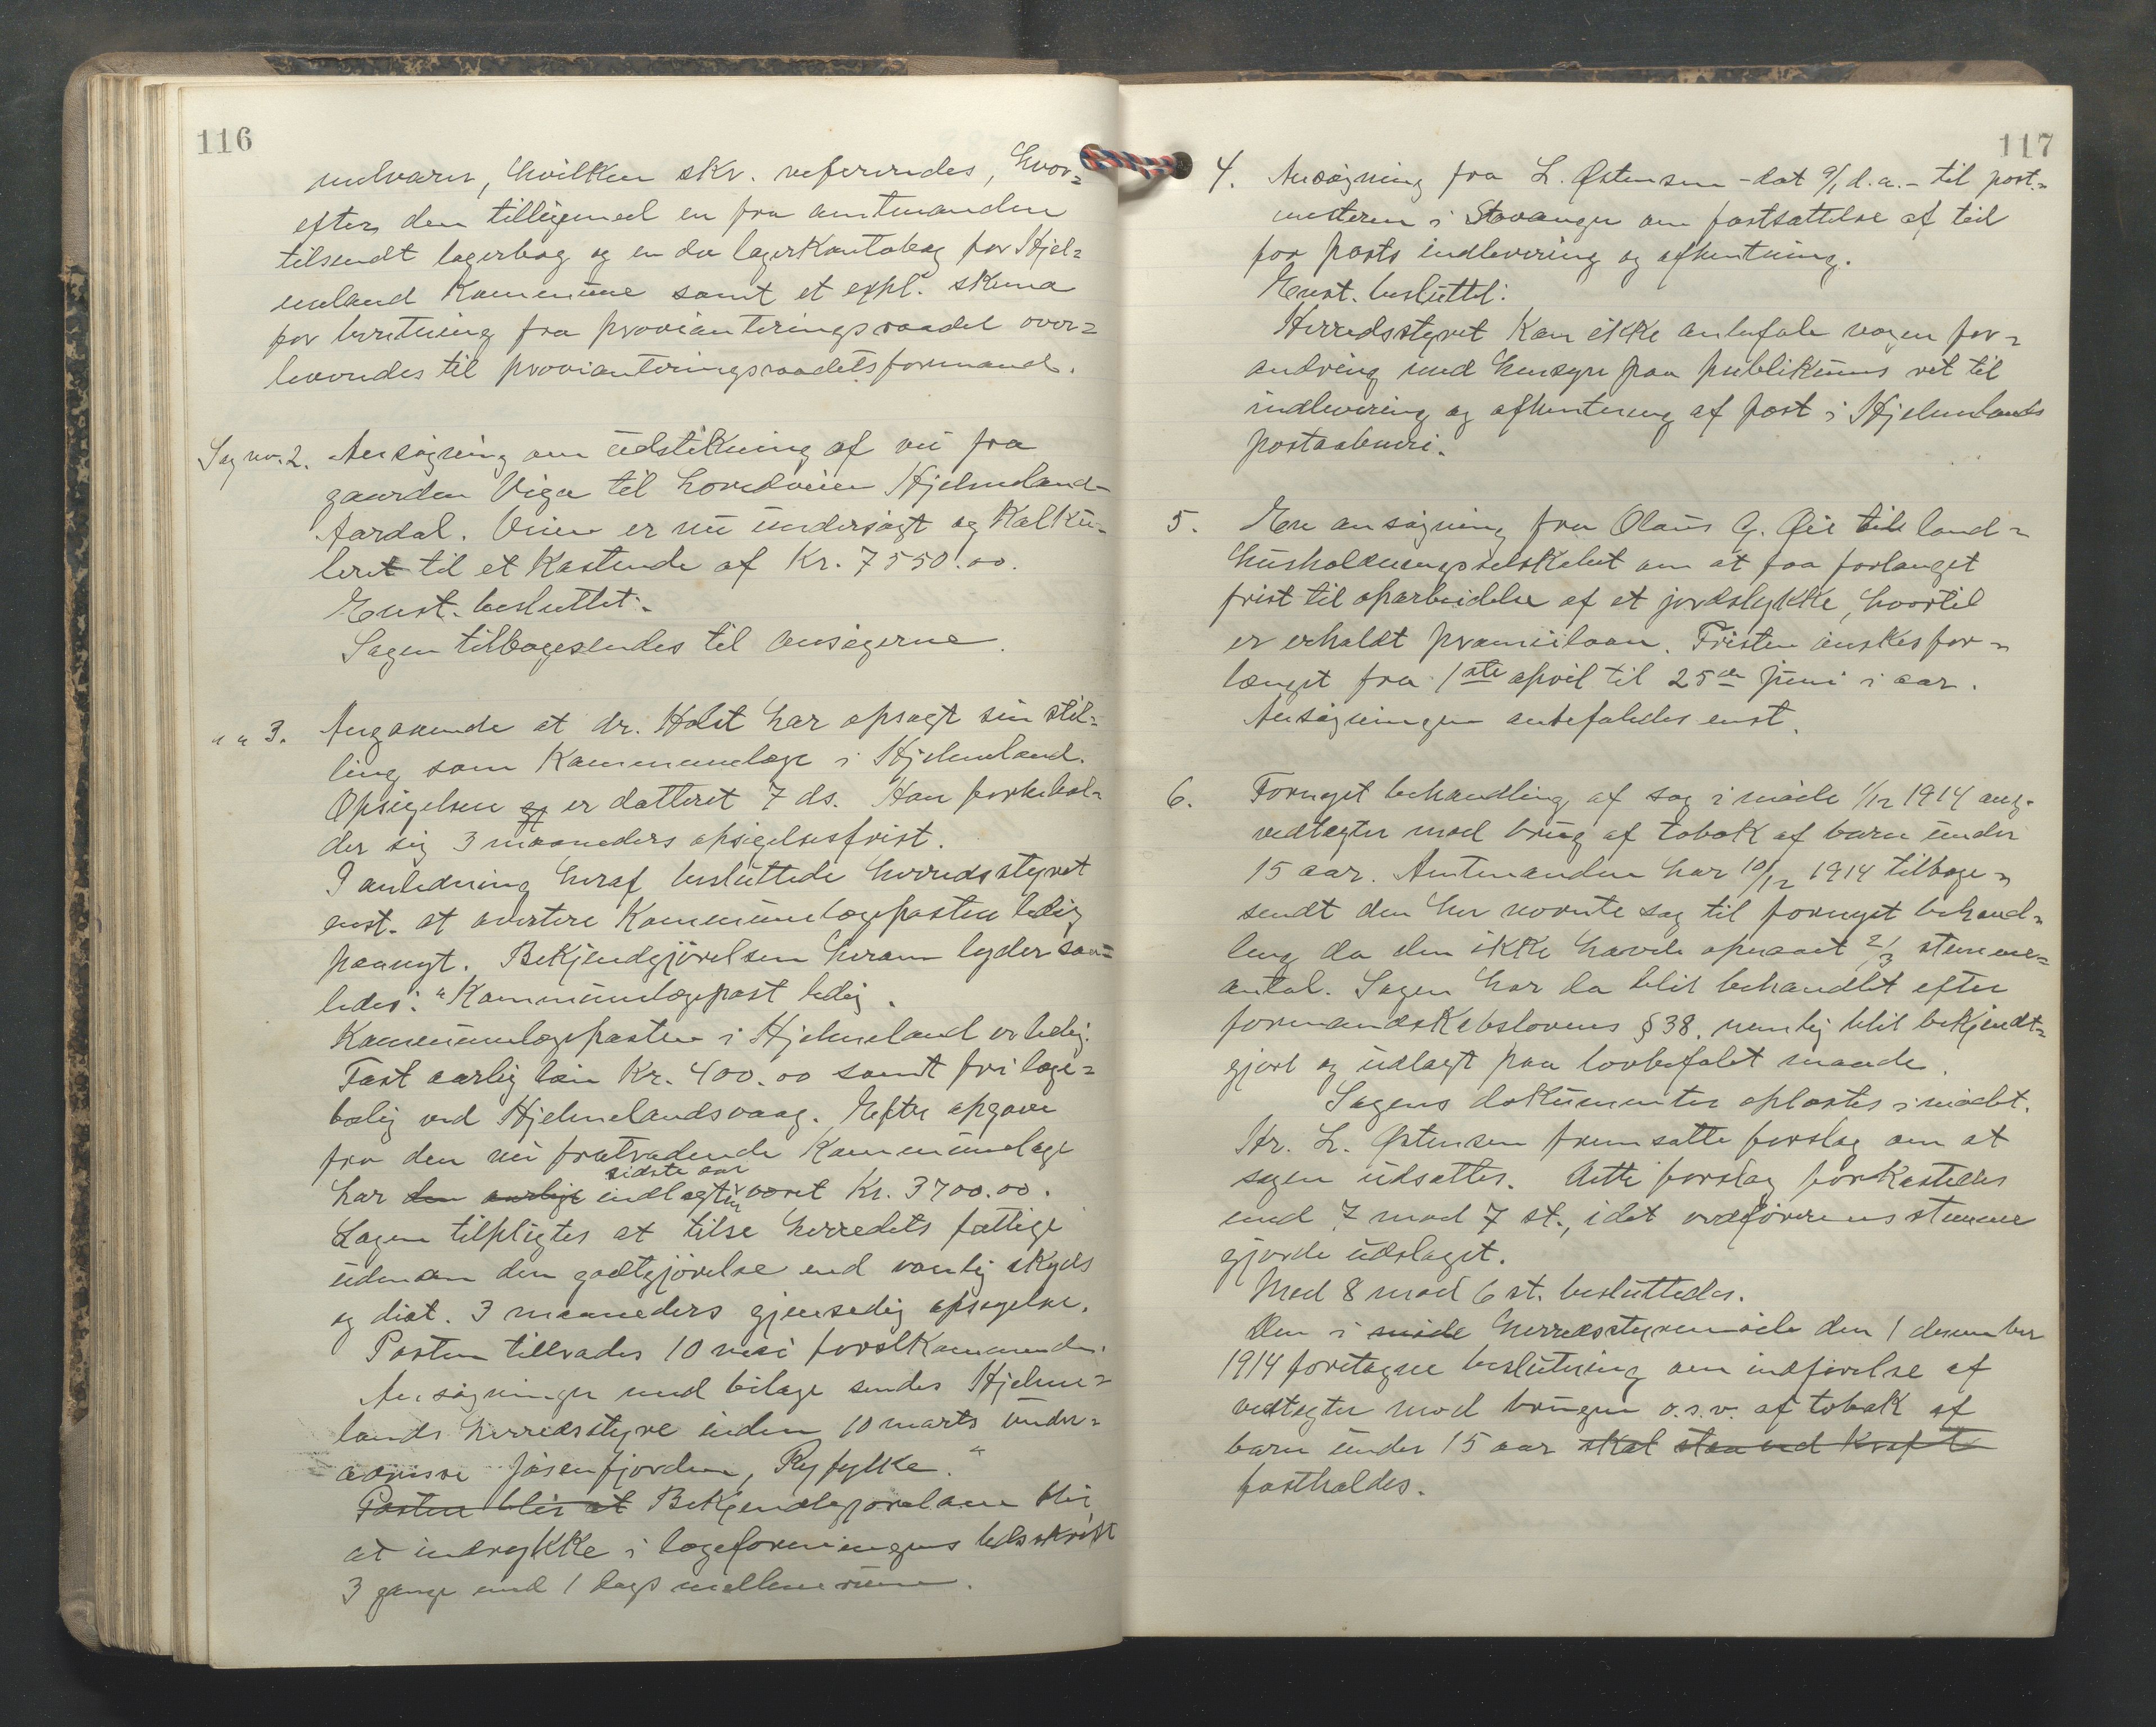 116
melvarer, hvilken skr. refereredes, hvor=
efter den tilligemed en fra amtmanden
tilsendt lagerbog og en do lagerkontobog for Hjel=
meland kommune samt et expl. skema
for beretning fra provianteringsraadet over=
leveredes til provianteringsraadets formand.
Sag nr. 2. Ansøgning om udstikning af vei fra
gaarden Viga til hovedveien Hjelmeland-
Aardal. Veien er nu undersøgt og kalku-
leret til et kostende af Kr. 7550.00.
Enst. besluttet:
Sagen tilbagesendes til ansøgerne.
" " 3. Angaaende at dr. Holst har opsagt sin stil=
ling som kommunelæge i Hjelmeland.
Opsigelsen er datteret 7 ds. Han forbehol=
der sig 3 maaneders opsigelsesfrist.
I anledning heraf besluttede herredsstyret
enst. at avertere kommunelægeposten ledig
paanyt. Bekjendgjørelsen herom lyder saa=
ledes: "Kommunelægepost ledig.
Kommunelægeposten i Hjelmeland er ledig.
Fast aarlig løn Kr. 400.00 samt fri læge=
bolig ved Hjelmelandsvaag. Efter opgave
fra den nu fratrædende kommunelæge
sidste aar
har den aarlige indtægt været Kr. 3700.00.
Lægen tilpligtes at tilse herredets fattige
uden anden godtgjørelse end vanlig skyds
og diæt. 3 maaneders gjensidig opsigelse.
Posten tiltrædes 10 mai førstkommende.
Ansøgninger med bilage sendes Hjelme=
lands herredsstyre inden 10 marts under=
adresse Jøsenfjorden, Ryfylke."
Posten blir at Bekjendtgjørelsen blir
at indrykke i lægeforeningens tidsskrift
3 gange med 1 dags mellemrum.
117
4. Ansøgning fra L. Østensen - dat 9/1 d.a. - til post=
mesteren i Stavanger om fastsættelse af tid
for posts indlevering og afhentning.
Enst. besluttet:
Herredsstyret kan ikke anbefale nogen for=
andring med hensyn paa publikums ret til
indlevering og afhentning af post i Hjelmelands
postaabneri.
5. En ansøgning fra Olaus G. Øie til land=
husholdningsselskabet om at faa forlænget
frist til oparbeidelse af et jordstykke, hvortil
er erholdt præmielaan. Fristen ønskes for=
længet fra 1ste april til 25de juni i aar.
Ansøgningen anbefaledes enst.
6. Fornyet behandling af sag i møde 1/12 1914 ang.
vedtægter mod brug af tobak af barn under
15 aar. Amtmanden har 10/12 1914 tilbage=
sendt den her nævnte sag til fornyet behand=
ling da den ikke havde opnaaet 2/3 stemme=
antal. Sagen har da blit behandlet efter
formandskabslovens § 38, nemlig blit bekjendt=
gjort og udlagt paa lovbefalet maade.
Sagens dokumenter oplæstes i mødet.
Hr. L. Østensen fremsatte forslag om at
sagen udsættes. Dette forslag forkastedes
med 7 mod 7 st., idet ordførerens stemme
gjorde udslaget.
Med 8 mod 6 st. besluttedes.
Den i møde herredsstyremøde den 1 desember
1914 foretagne beslutning om indførelse af
vedtægter mod brugen o.s.v. af tobak af
barn under 15 aar skal staa ved kraft
fastholdes.